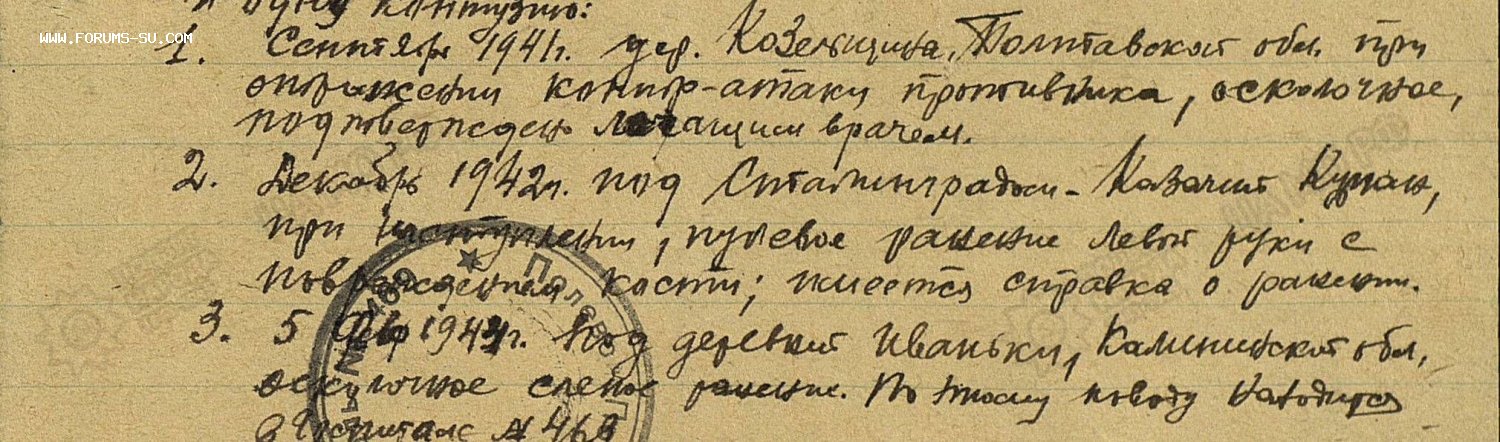 и одну контузию:
WWW.FORUMS-SU.COM
1. Сентябрь 1941г. дер. Козельщина, Полтавской обл. при
отражении контр-атаки противника, осколочное,
подтверждено лечащим врачем.
2. Декабрь 1942г. под Сталинградом - Казачий Курган,
при наступлении, пулевое ранение левой руки с
повреждением кости; имеется справка о ранении.
3. 5 1944г. под деревней Иваньки, Калининской обл.
осколочное слепое ранение. По этому поводу находился
в Госпитале № 469